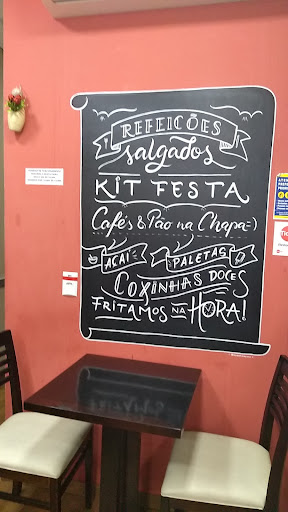 REFEICÕES
salgados
KIT FESTA
Cafés & Pão na Chapa =)
AÇAÍ PALETAS
COXINHAS DOCES
FRITAMOS NA HORA!